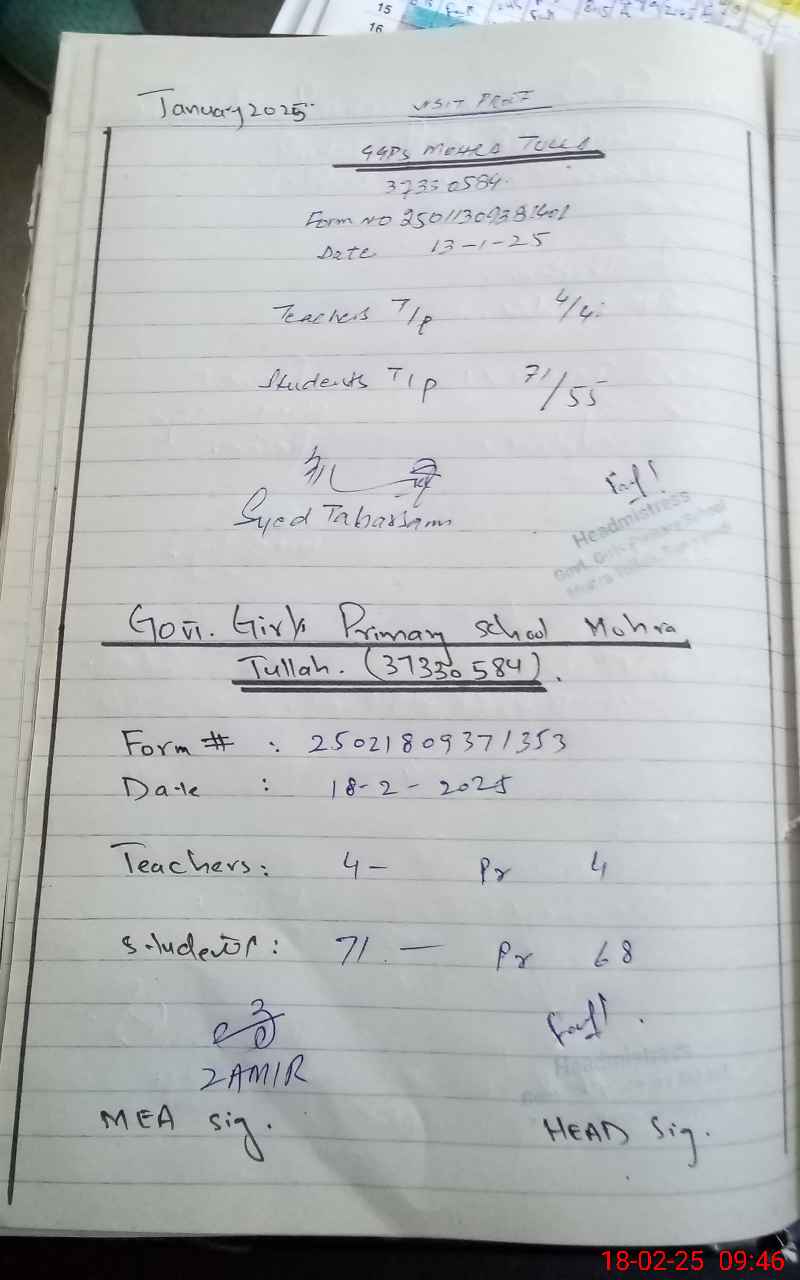 15
16
January 2025
VISIT PROOF
GGPS MOHRA TULLA
37330584
Form NO 25011309381401
Date 13-1-25
Teachers T/p 4/4
Students T/p 71/55
Syed Tabarsam
Headmistress
Govt. Girls Primary School
Govt. Girls Primary School Mohra
Tullah. (37330584).
Form # : 25021809371353
Date : 18-2-2025
Teachers: 4- Pr 4
Students: 71 - Pr 68
ZAMIR
Headmistress
MEA Sig.
HEAD Sig.
18-02-25 09:46